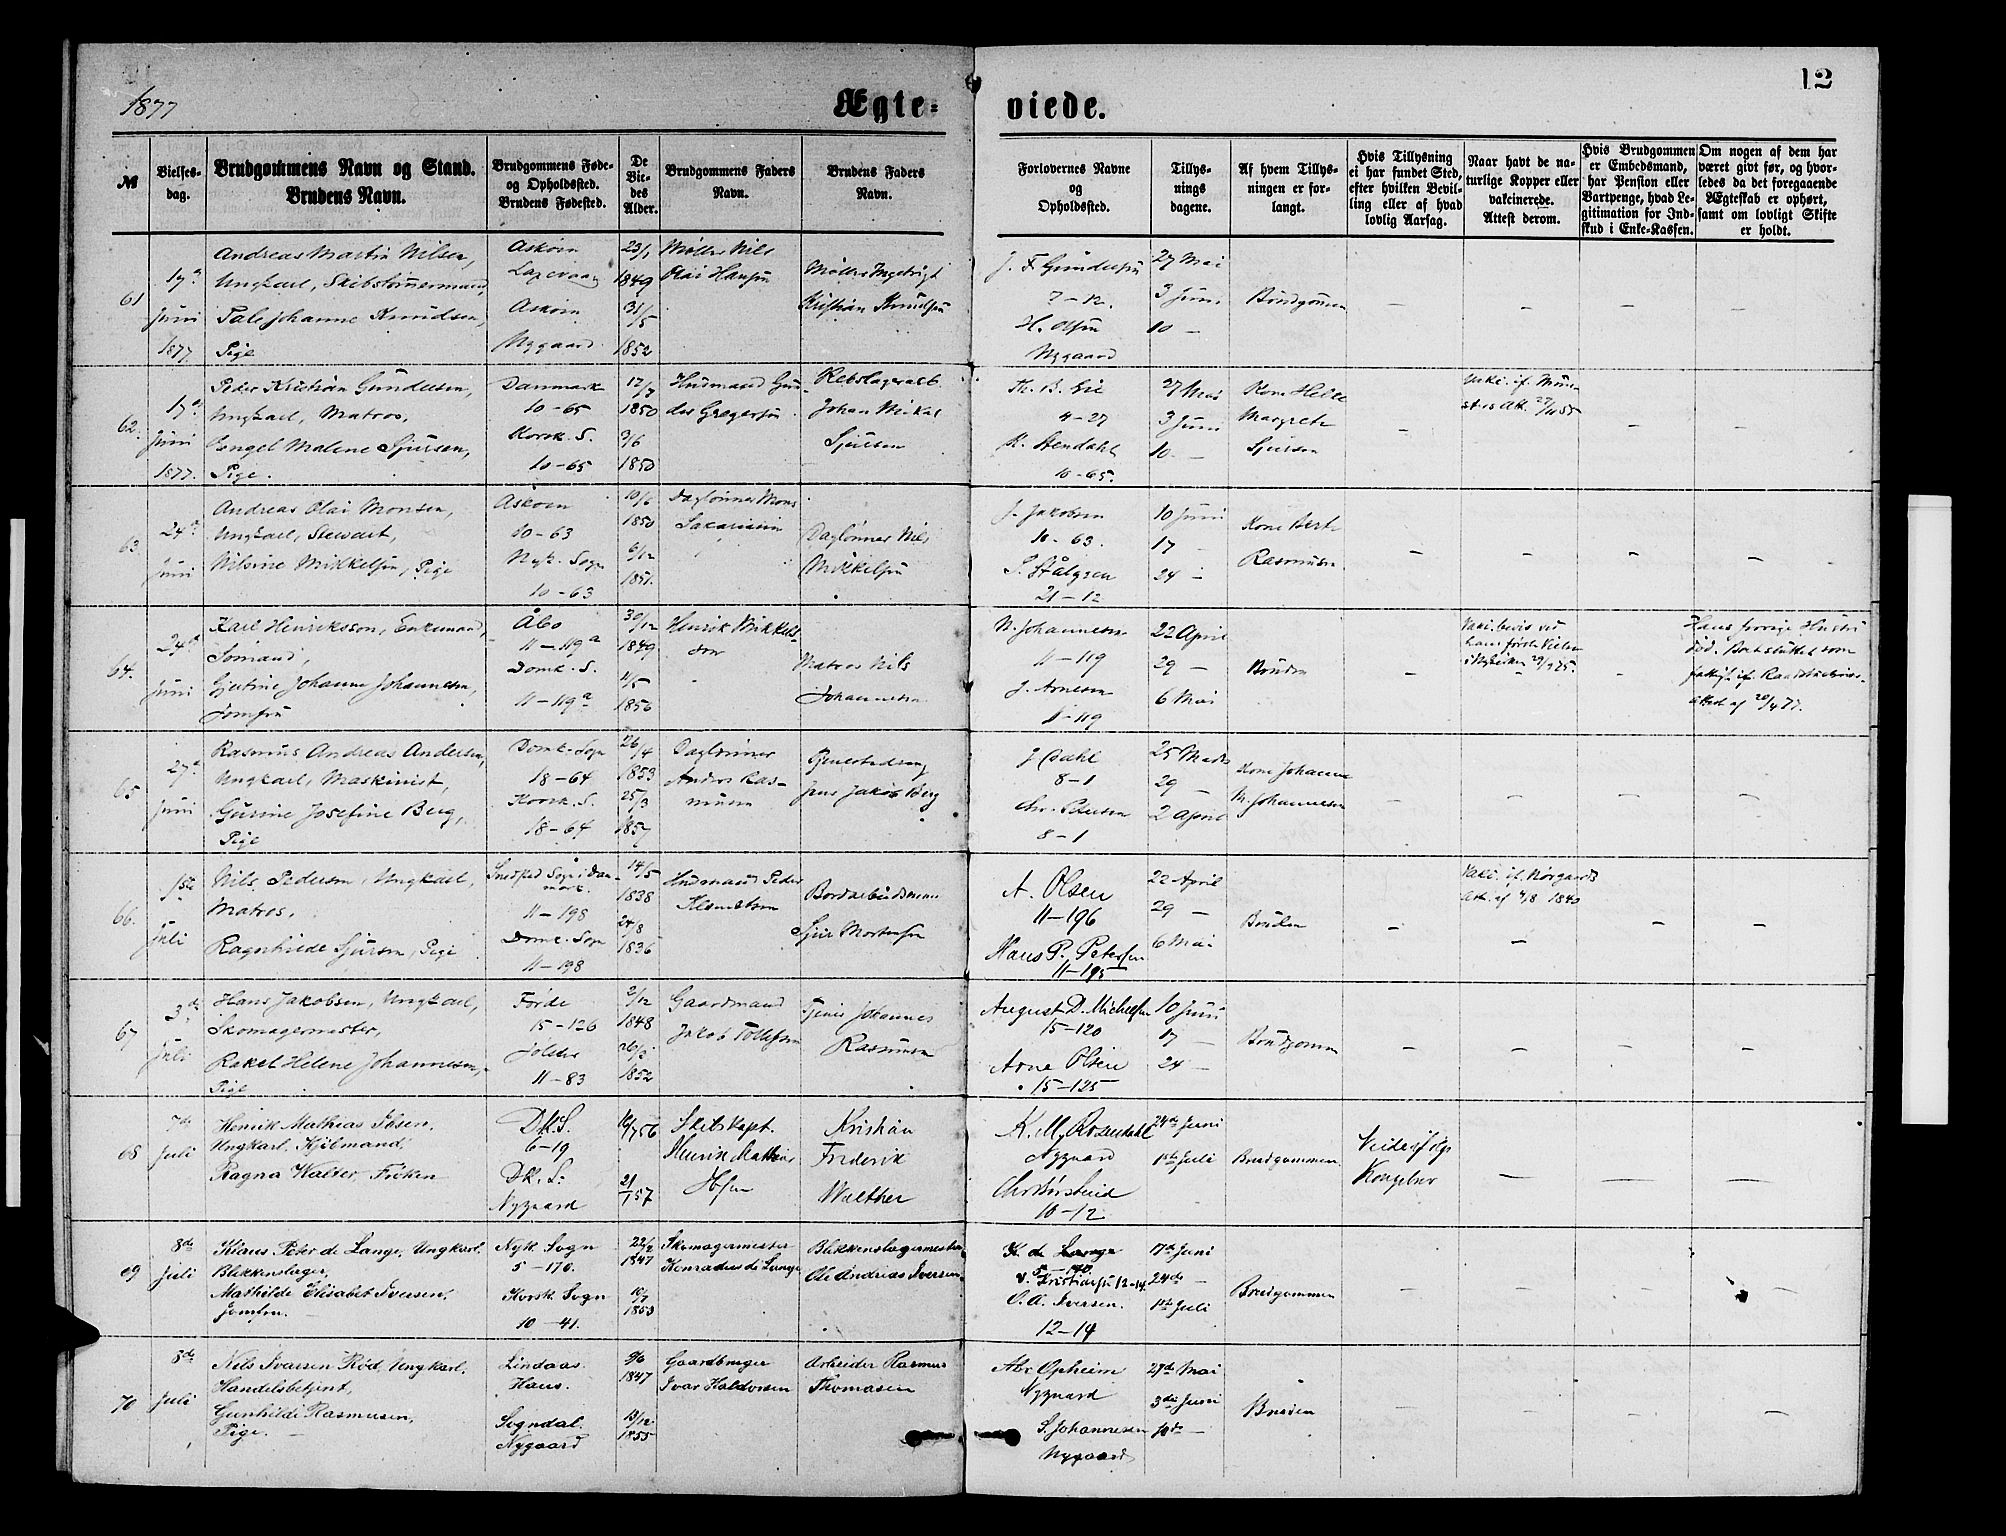 1877
Ægte-
viede.
12
№
Vielses-
dag.
Brudgommens Navn og Stand.
Brudens Navn.
Brudgommens Føde-
og Opholdsted.
Brudens Fødested.
De
Vie-
des
Alder.
Brudgommens Faders
Navn.
Brudens Faders
Navn.
Forlovernes Navne
og
Opholdsted.
Tillys-
nings
dagene.
Af hvem Tillys-
ningen er for-
langt.
Hvis Tillysning
ei har fundet Sted,
efter hvilken Bevil-
ling eller af hvad
lovlig Aarsag.
Naar havt de na-
turlige Kopper eller
vakcinerede.
Attest derom.
Hvis Brudgommen
er Embedsmand,
har Pension eller
Vartpenge, hvad Le-
gitimation for Ind-
skud i Enke-Kassen.
Om nogen af dem har
været givt før, og hvor-
ledes da det foregaaende
Ægteskab er ophørt,
samt om lovligt Skifte
er holdt.
61
17de
Juni
1877.
Andreas Martin Nilsen,
Ungkarl, Skibstømmermand,
Johanne Knudsen,
Pige
Askøen
Askøen
Nygaard
23/1
1849
31/5
1852
Møller Nils
Olai Hansen
Møller Ingebrigt
Kristian Knudsen
J. F. Gundersen
7-12.
H. Olsen
Nygaard
27 Mai
3 Juni
10 -
Brudgommen
62.
17de
Juni
1877.
Peder Kristian Gundersen,
Ungkarl, Matros,
Engel Malene Sjursen,
Pige.
Danmark
10-65
Korsk. S.
10-65
12/7
1850
9/6
1850
Husmand Gun-
der Gregersen
Johan Mikal
Sjursen
Th. B. Lie
4-27
K. Stendahl
10-65.
27 Mai
3 Juni
10. -
Kone Helle
Margrete
Sjursen
63
24de
Juni
Andreas Olai Monsen,
Ungkarl, Stewart,
Nilsine Mikkelsen, Pige
Askøen
10-63
Nyk. Sogn
10-63
10/6
1850
6/12
1851.
Daglønner Mons
Sakariasen
Daglønner Nils
Mikkelsen
J. Jakobsen
10-63.
21-12
10 Juni
17 -
24 -
Kone Berte
Rasmusen
64.
24de
Juni
Karl Henriksson, Enkemand,
Sømand,
Gjertine Johanne Johannesen,
Jomfru
Åbo
11-119a
Domk. S.
11-119a
30/12
1849
4/5
1856
Henrik Mikkels-
son
Matros Nils
Johannesen
N. Johannesen
11-119
J. Arnesen
11-119
22 April
29 -
6 Mai
Bruden
Hans forrige Hustru
død. Bortsluttet som
fattig if. Raadstueskriver-
attest af 20/4 77.
65
27de
Juni
Rasmus Andreas Andersen,
Ungkarl, Maskinist,
Gurine Josefine Berg,
Pige
Domk. Sogn
18-64
Korsk. S.
18-64
26/4
1853
25/3
1857
Daglønner
Anders Ras-
musen
Jens Jakob Berg
J. Dahl
8-1
Chr. Petersen
8-1
25 Marts
29 -
2 April
Kone Johanne
M. Johannesen
66.
1ste
Juli
Nils Pedersen, Ungkarl,
Matros,
Ragnhilde Sjursen, Pige
Snedsted Sogn i Dan-
mark.
11-198
Domk. Sogn
11-198
14/5
1838
24/8
1836
Husmand Peder
Klemetsen
Bordarbeidsmand
Sjur Mortensen
A. Olsen
11-196
Hans P. Petersen
11-195
22 April
29 -
6 Mai
Bruden
67
3de
Juli
Hans Jakobsen, Ungkarl,
Skomagermester,
Rakel Helene Johannesen,
Pige
Førde
15-126
Jølster
11-83
2/12
1848
1852
Gaardmand
Jakob Tollefsen
Tjener Johannes
Rasmusen
August D. Michelsen
15-120
Arne Olsen
15-125
10 Juni
17 -
24 -
Brudgommen
68
7de
Juli
Henrik Mathias Ibsen,
Ungkarl, Kjøbmand,
Ragna Walter, Frøken
Dk. S.
6-19
Dk. S.
Nygaard
10/7 56
21/1 57
Skibskapt.
Henrik Mathias
Ibsen
Kristian
Frederik
Walther
K. M. Rosendahl
Nygaard
10-12
24de Juni
1ste Juli
Brudgommen
69
8de
Juli
Klaus Peter de Lange, Ungkarl.
Blikkenslager,
Mathilde Elisabet Iversen,
Jomfru.
Nyk. Sogn
5-170.
Korsk. Sogn
10-41.
22/2
1847
10/7
1853
Skomagermester
Konradus de Lange
Blikkenslagermester
Ole Andreas Iversen
K. de Lange
5-170.
V. Kristiansen 12-14.
O. A. Iversen.
12-14
17de Juni
24de -
1ste Juli
Brudgommen
70
8de
Juli
Nils Ivarsen Rød, Ungkarl.
Handelsbetjent,
Gunhilde Rasmusen,
Pige.
Lindaas.
Haus.
Sogndal.
Nygaard
9/6
1847
13/12
1855
Gaardbruger
Ivar Haldorsen
Arbeider Rasmus
Thomasen
Abr Opheim
Nygaard
S. Johannesen
Nygaard
27de Mai
3die Juni
10de -
Bruden